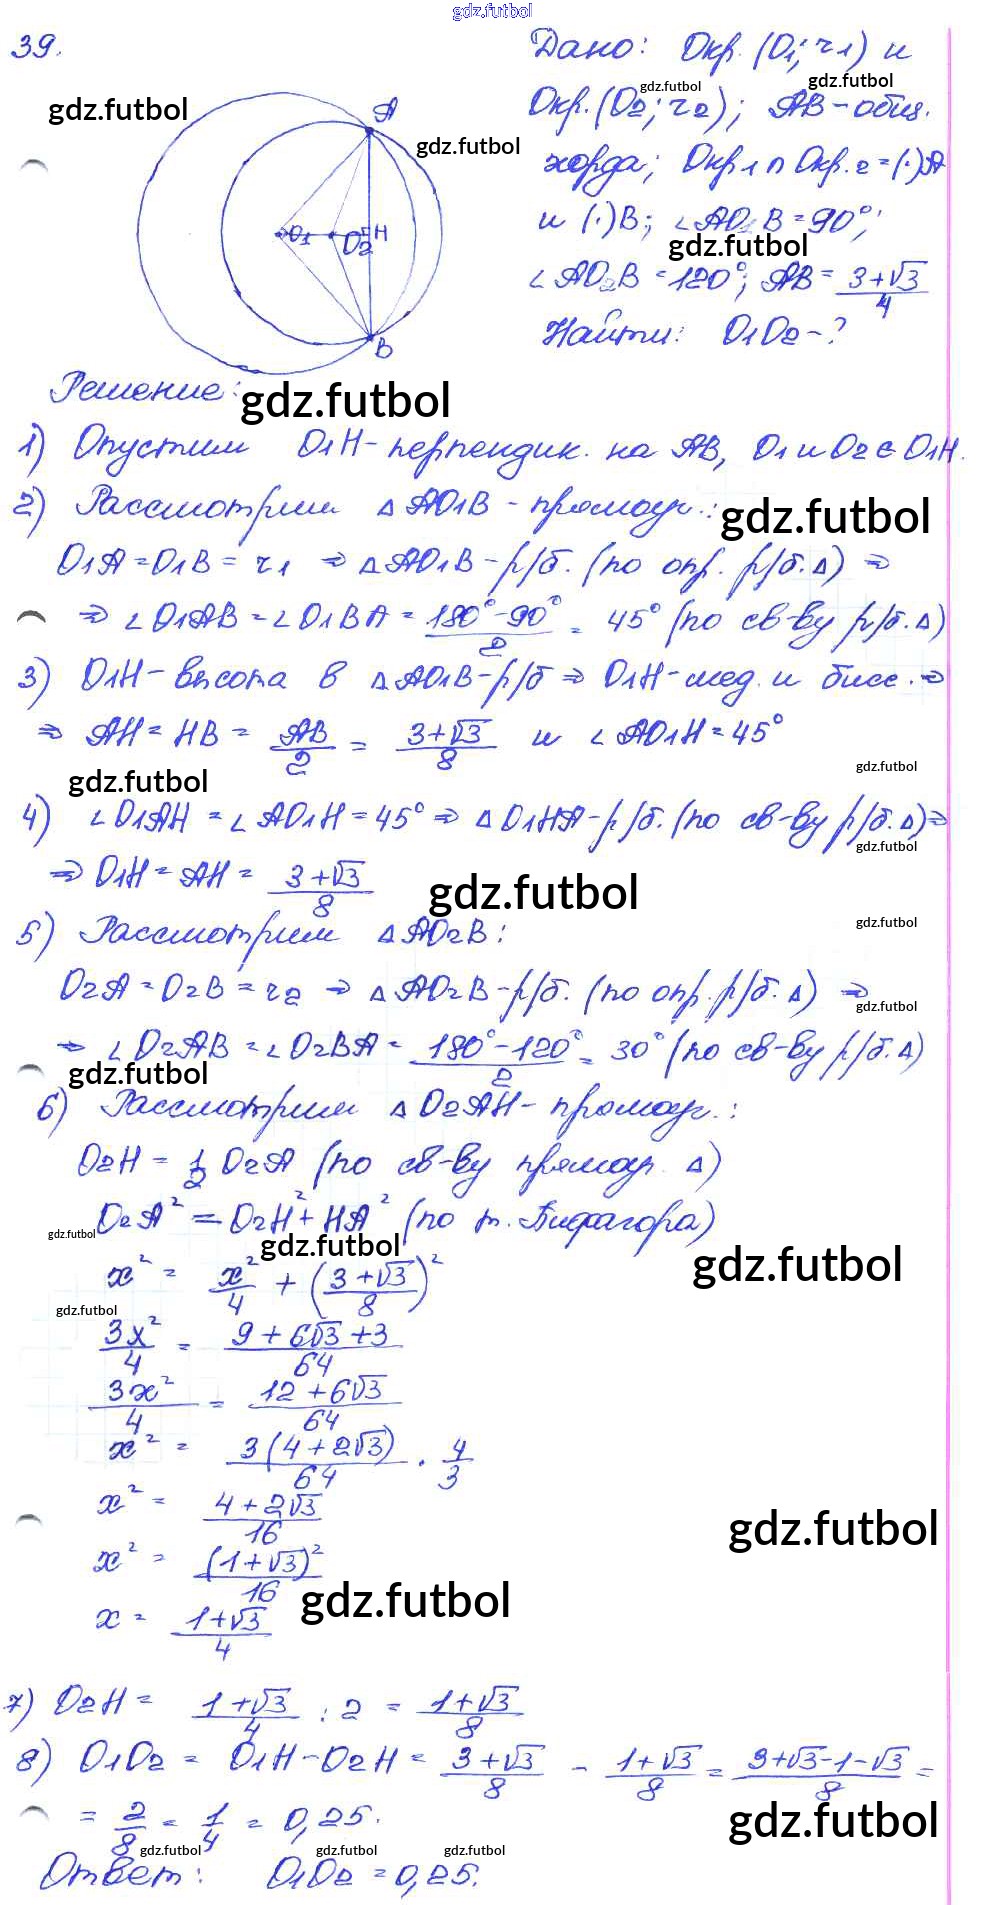 gdz.futbol
39.
Дано: Окр.(O₁; r₁) и
Окр.(O₂; r₂); AB - общ.
хорда; Окр.₁ ∩ Окр.₂ = (·)A
и (·)B; ∠AO₁B = 90°;
∠AO₂B = 120°; AB = (3+√3)/4
Найти: O₁O₂ - ?
A
O₁ O₂ H
B
gdz.futbol
gdz.futbol
gdz.futbol
gdz.futbol
gdz.futbol
Решение: gdz.futbol
1) Опустим O₁H - перпендик. на AB, O₁ и O₂ ∈ O₁H.
2) Рассмотрим △AO₁B - прямоуг.: gdz.futbol
O₁A = O₁B = r₁ ⇒ △AO₁B - р/б. (по опр. р/б. △) ⇒
⇒ ∠O₁AB = ∠O₁BA = (180° - 90°)/2 = 45° (по св-ву р/б. △)
3) O₁H - высота в △AO₁B - р/б ⇒ O₁H - мед. и бисс. ⇒
⇒ AH = HB = AB/2 = (3+√3)/8 и ∠AO₁H = 45°
gdz.futbol gdz.futbol
4) ∠O₁AH = ∠AO₁H = 45° ⇒ △O₁HA - р/б. (по св-ву р/б. △) ⇒
gdz.futbol
⇒ O₁H = AH = (3+√3)/8 gdz.futbol
5) Рассмотрим △AO₂B: gdz.futbol
O₂A = O₂B = r₂ ⇒ △AO₂B - р/б. (по опр. р/б. △) ⇒
gdz.futbol
⇒ ∠O₂AB = ∠O₂BA = (180° - 120°)/2 = 30° (по св-ву р/б. △)
gdz.futbol
6) Рассмотрим △O₂AH - прямоуг.:
O₂H = 1/2 O₂A (по св-ву прямоуг. △)
O₂A² = O₂H² + HA² (по т. Пифагора)
gdz.futbol gdz.futbol gdz.futbol
x² = x²/4 + ((3+√3)/8)²
gdz.futbol
3x²/4 = (9+6√3+3)/64
3x²/4 = (12+6√3)/64
x² = 3(4+2√3)/64 · 4/3
x² = (4+2√3)/16
gdz.futbol
x² = (1+√3)²/16
gdz.futbol
x = (1+√3)/4
7) O₂H = (1+√3)/4 : 2 = (1+√3)/8
8) O₁O₂ = O₁H - O₂H = (3+√3)/8 - (1+√3)/8 = (3+√3-1-√3)/8 =
= 2/8 = 1/4 = 0,25. gdz.futbol
gdz.futbol gdz.futbol gdz.futbol
Ответ: O₁O₂ = 0,25.